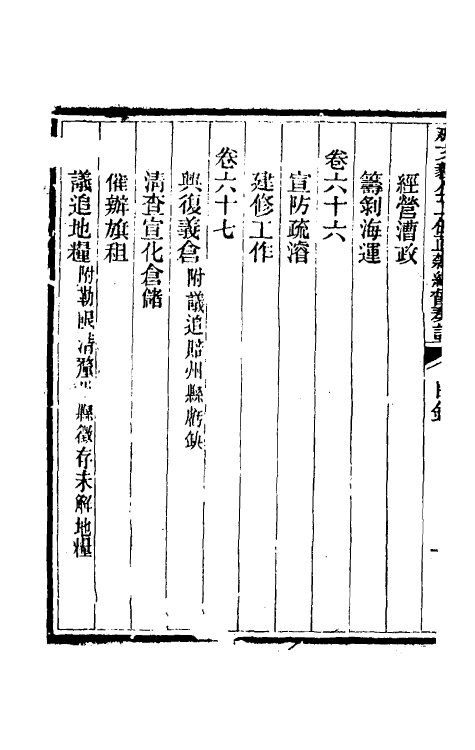 經營漕政
籌剝海運
卷六十六
宣防疏濬
建修工作
卷六十七
興復義倉附議追賠州縣虧缺
清查宣化倉儲
催辦旗租
議追地糧附勒限清釐 縣徵存未解地糧